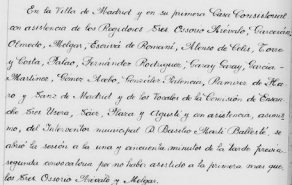 En la Villa de Madrid y en su primera Casa Consistorial
con asistencia de los Regidores Sres Ossorio Arévalo, Garcerán,
Olmedo, Melgar, Escrivá de Romaní, Alonso de Celis, Torre
y Costa, Palao, Fernandez Rodriguez, Garay Garay, Garcia-
Martinez, Gomez Acebo, Gonzalez Palencia, Ramirez de Ha-
ro y Sanz de Madrid y de los Vocales de la Comisión de Ensan-
che Sres Usera, Saiz, Plaza y con asistencia, asimis-
mo, del Interventor municipal D. Basilio Martí Ballesté, se
abrió la sesión a la una y cincuenta minutos de la tarde previa
segunda convocatoria por no haber asistido a la primera mas que
los Sres Ossorio Arévalo y Melgar.